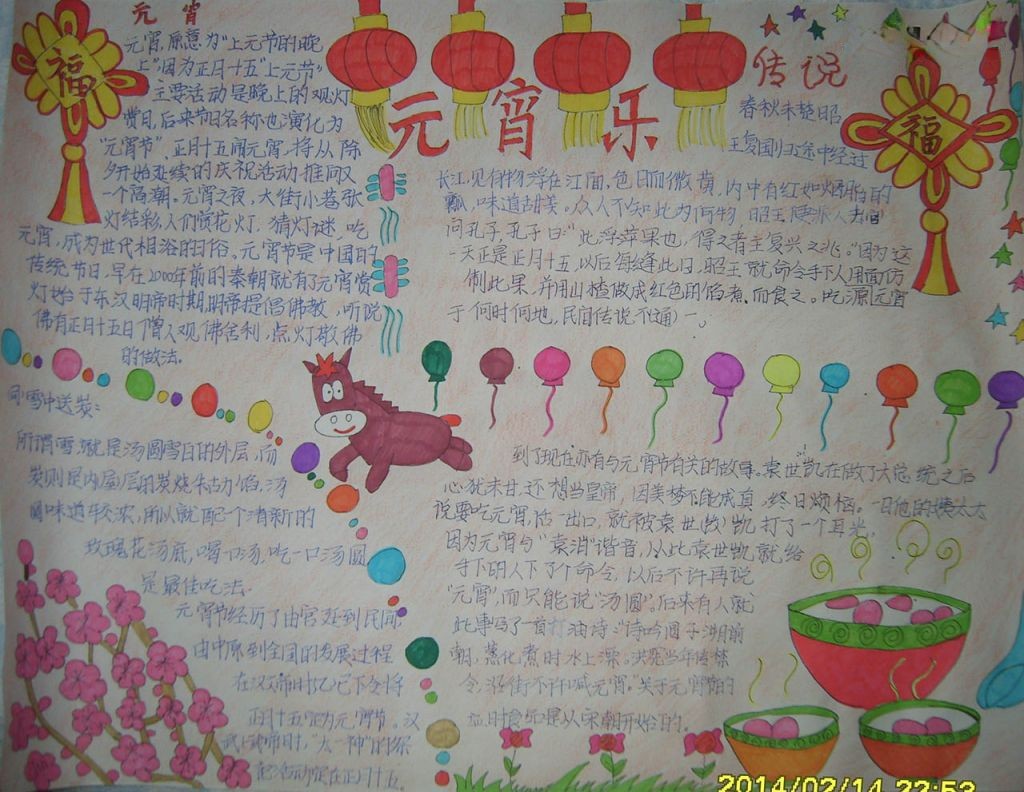 元宵
元宵,原意为“上元节的晚
上”因为正月十五“上元节”
主要活动是晚上的观灯
赏月,后来节日名称也演化为
“元宵节”、正月十五闹元宵,将从除
夕开始延续的庆祝活动推向又
一个高潮。元宵之夜,大街小巷张
灯结彩,人们赏花灯,猜灯谜,吃
元宵,成为世代相沿的习俗。元宵节是中国的
传统节日,早在2000年前的秦朝就有了元宵赏
灯始于东汉明帝时期,明帝提倡佛教,听说
佛有正月十五日僧人观佛舍利,点灯敬佛
的做法。
福
元宵乐
福
传说
春秋末楚昭
王复国归途中经过
长江,见有物浮在江面,色白而微黄,内中有红如烟脂的
瓢,味道甜美。众人不知此为何物 昭王便派人去
问孔子,孔子曰:“此浮苹果也,得之者主复兴之兆。”因为这
一天正是正月十五,以后每逢此日,昭王就命令手下人用面仿
制此果,并用山楂做成红色的馅煮,而食之。吃源元宵
于何时何地,民间传说不一。
雪中送炭:
所谓雪,就是汤圆雪白的外层,而
炭则是内层的炭烧朱古力馅,汤
圆味道较浓,所以就配一个清新的
玫瑰花汤底,喝一口汤,吃一口汤圆,
是最佳吃法。
元宵节经历了由宫廷到民间,
由中原到全国的发展过程
在汉文帝时已下令将
正月十五定为元宵节。汉
武帝时,“太一神”的祭
祀活动定在正月十五
到了现在亦有与元宵节有关的故事。袁世凯在做了大总统之后
心犹未甘,还想当皇帝,因美梦不能成真,终日烦恼。一日他的姨太太
说要吃元宵,话一出口,就被袁世凯打了一个耳光,
因为元宵与“袁消”谐音,从此袁世凯就给
手下的人下了个命令,以后不许再说
“元宵”,而只能说“汤圆”。后来有人就
此事写了一首打油诗:“诗吟圆子溯前
朝,蒸化煮时水上漂。洪宪当年传禁
令,沿街不许喊元宵。”关于元宵节的
应时食品是从宋朝开始的。
2014/02/14 22:53